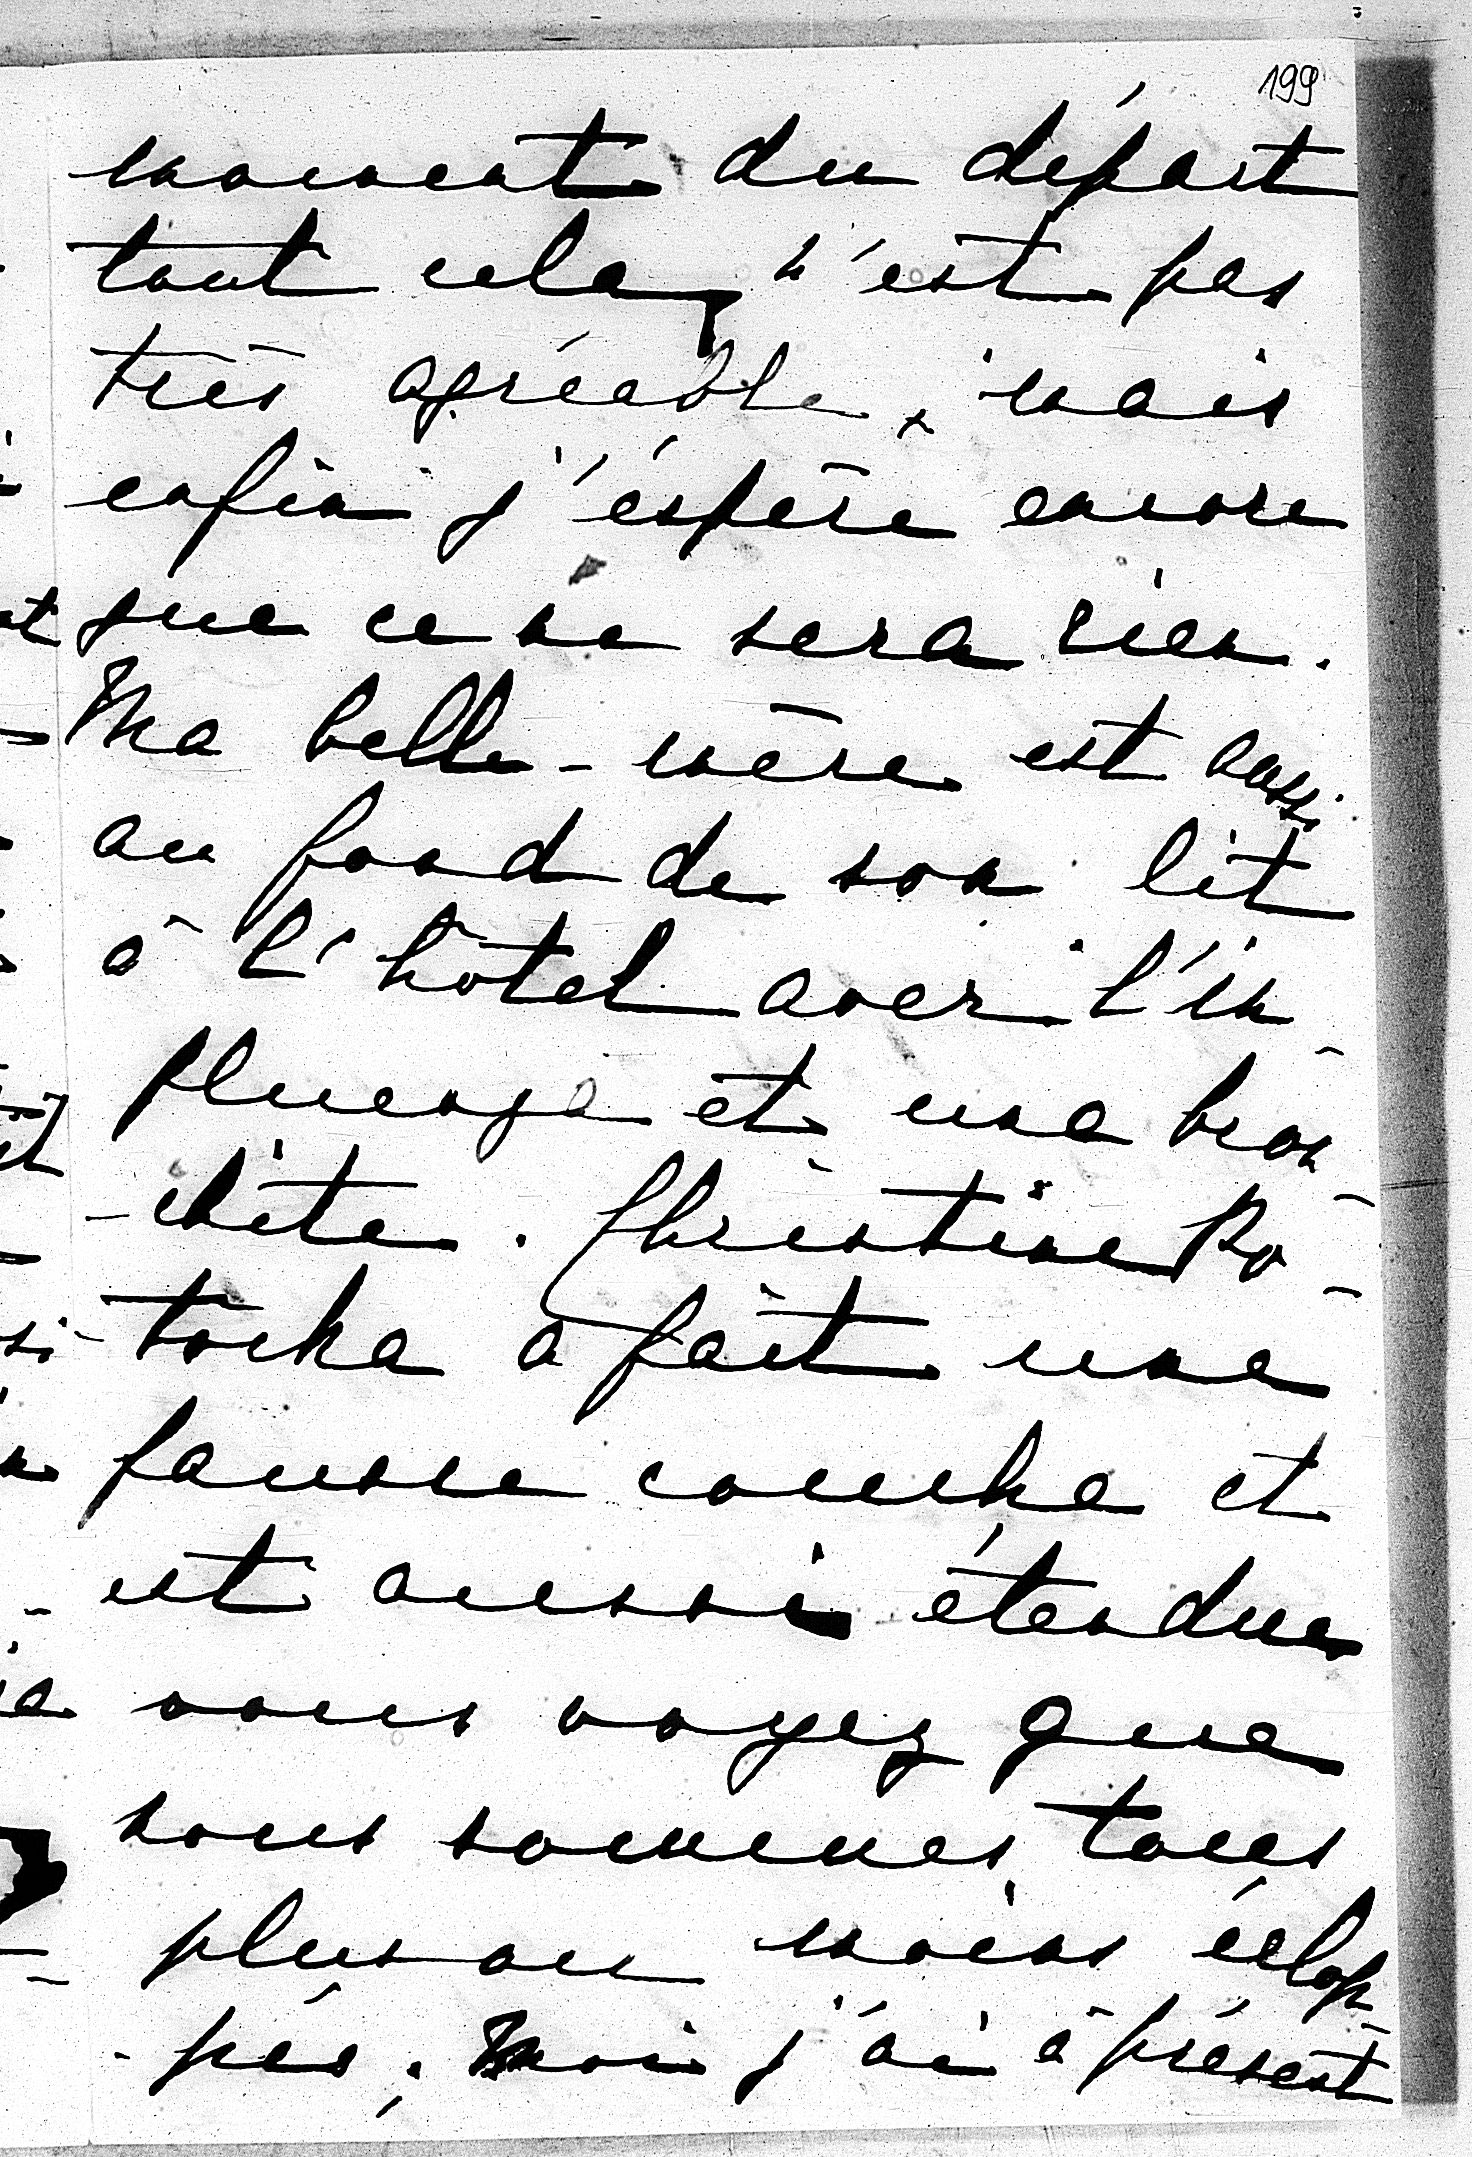 199
moment du départ
tout cela n'est pas
très agréable, mais
enfin j'éspère encore
que ce ne sera rien.
Ma belle-mère est aussi
au fond de son lit
à l'hôtel avec l'in-
fluenza et une bron-
-chite. Christine Po-
-tocka a fait une
fausse couche et
est aussi étendue
vous voyez que
nous sommes tous
plus ou moins éclop-
-pés; moi j'ai à présent